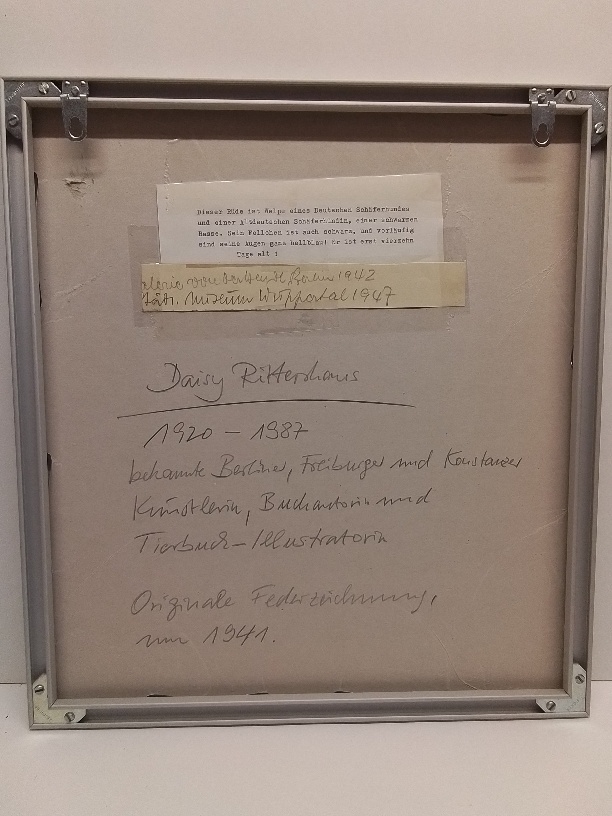 Dieser Rüde ist Welpe eines Deutschen Schäferhundes
und einer Altdeutschen Schäferhündin, einer schwarzen
Rasse. Sein Fellchen ist auch schwarz, und vorläufig
sind seine Augen ganz hellblau! Er ist erst vierzehn
Tage alt !
alerie von der Heyde, Berlin 1942
Städt. Museum Wuppertal 1947
Daisy Rittershaus
1920 - 1987
bekannte Berliner, Freiburger und Konstanzer
Künstlerin, Buchautorin und
Tierbuch-Illustratorin
Originale Federzeichnung,
um 1941.